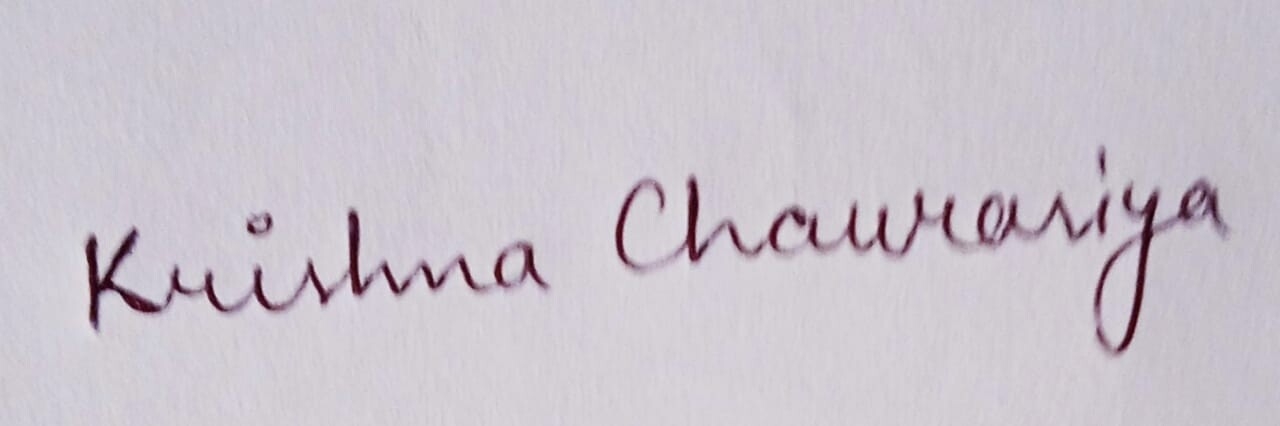 Krishna Chaurasiya